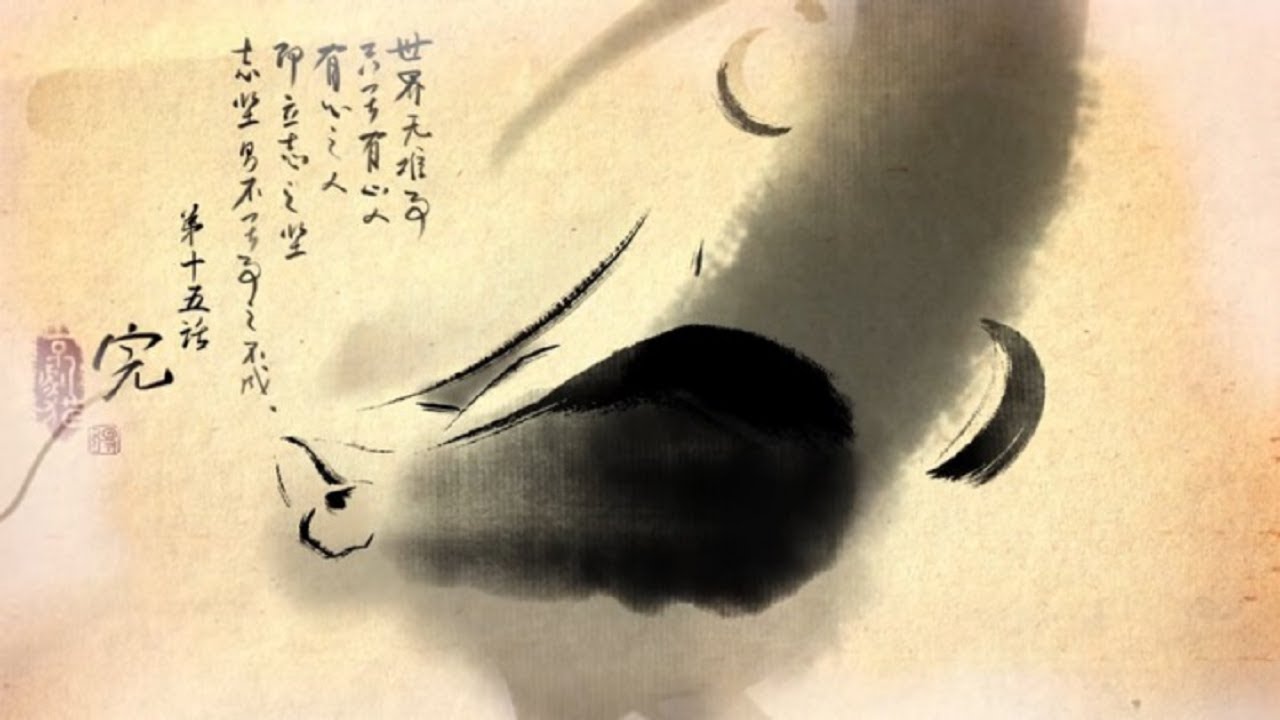 世界无难事
有心人
有心之人
即立志之坚
志坚 不 事之不成.
第十五话
完
京剧猫